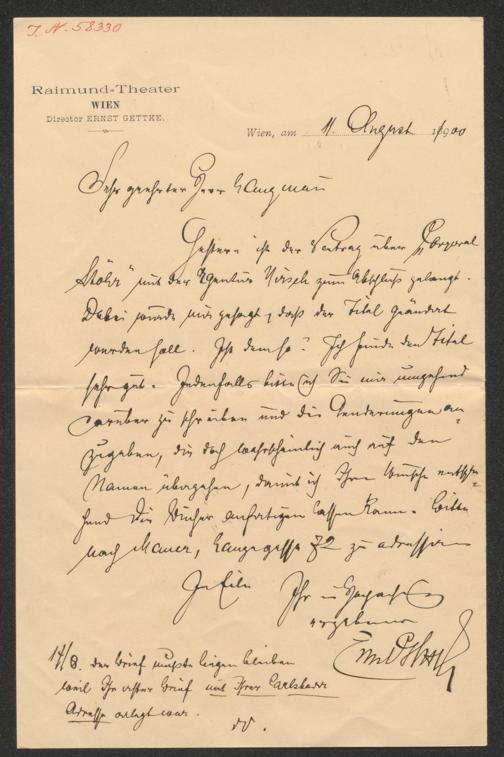 J. N. 58330
Raimund-Theater
WIEN
Director ERNST GETTKE.
Wien, am 11. August 1900
Sehr geehrter Herr Langmann
Gestern ist der Vertrag über „Corporal
Stöhr“ mit der Agentur Hirsch zum Abschluß gelangt.
Dabei wurde mir gesagt, daß der Titel geändert
werden soll. Ist dem so? Ich finde den Titel
sehr gut. Jedenfalls bitte ich Sie mir umgehend
darüber zu schreiben und die Aenderungen an-
zugeben, die doch wahrscheinlich auch auf den
Namen übergehen, damit ich Ihrem Wunsche entspre-
chend die Bücher anfertigen lassen kann. Bitte
nach Mauer, Langegasse 72 zu adressiren
In Eile Ihr
ergebener
14/8. der Brief mußte liegen bleiben
weil Ihr erster Brief mit Ihrer Carlsbader
Adresse verlegt war.